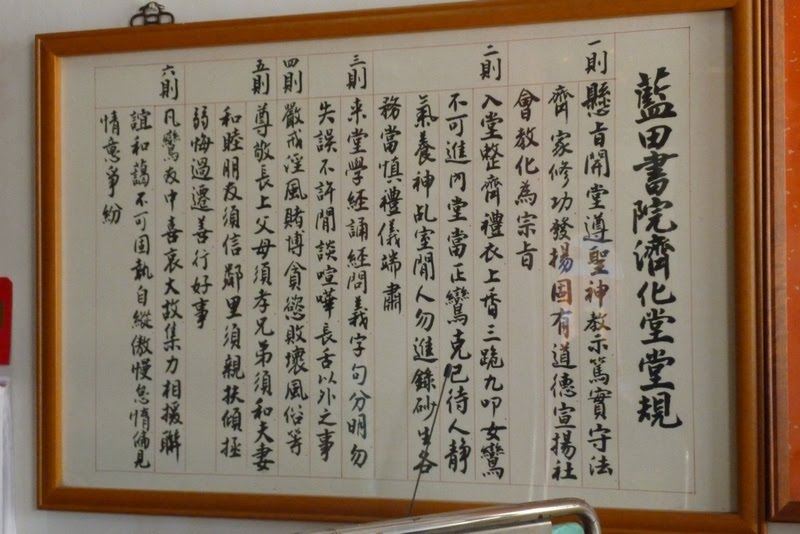 藍田書院濟化堂堂規
一則 懸旨開堂遵聖神教示篤實守法
齊家修功發揚固有道德宣揚社
會教化為宗旨
二則 入堂整齊禮衣上香三跪九叩女鸞
不可進內堂當正鸞克己待人靜
氣養神乩室閒人勿進錄砂生各
務當慎禮儀端肅
三則 来堂學經誦經問義字句分明勿
失誤不許閒談喧嘩長舌以外之事
四則 嚴戒淫風賭博貪慾敗壞風俗等
五則 尊敬長上父母須孝兄弟須和夫妻
和睦朋友須信鄰里須親扶傾拯
弱悔過遷善行好事
六則 凡鸞友中喜哀大故集力相援聯
誼和藹不可固執自縱傲慢怠惰偏見
情意爭紛